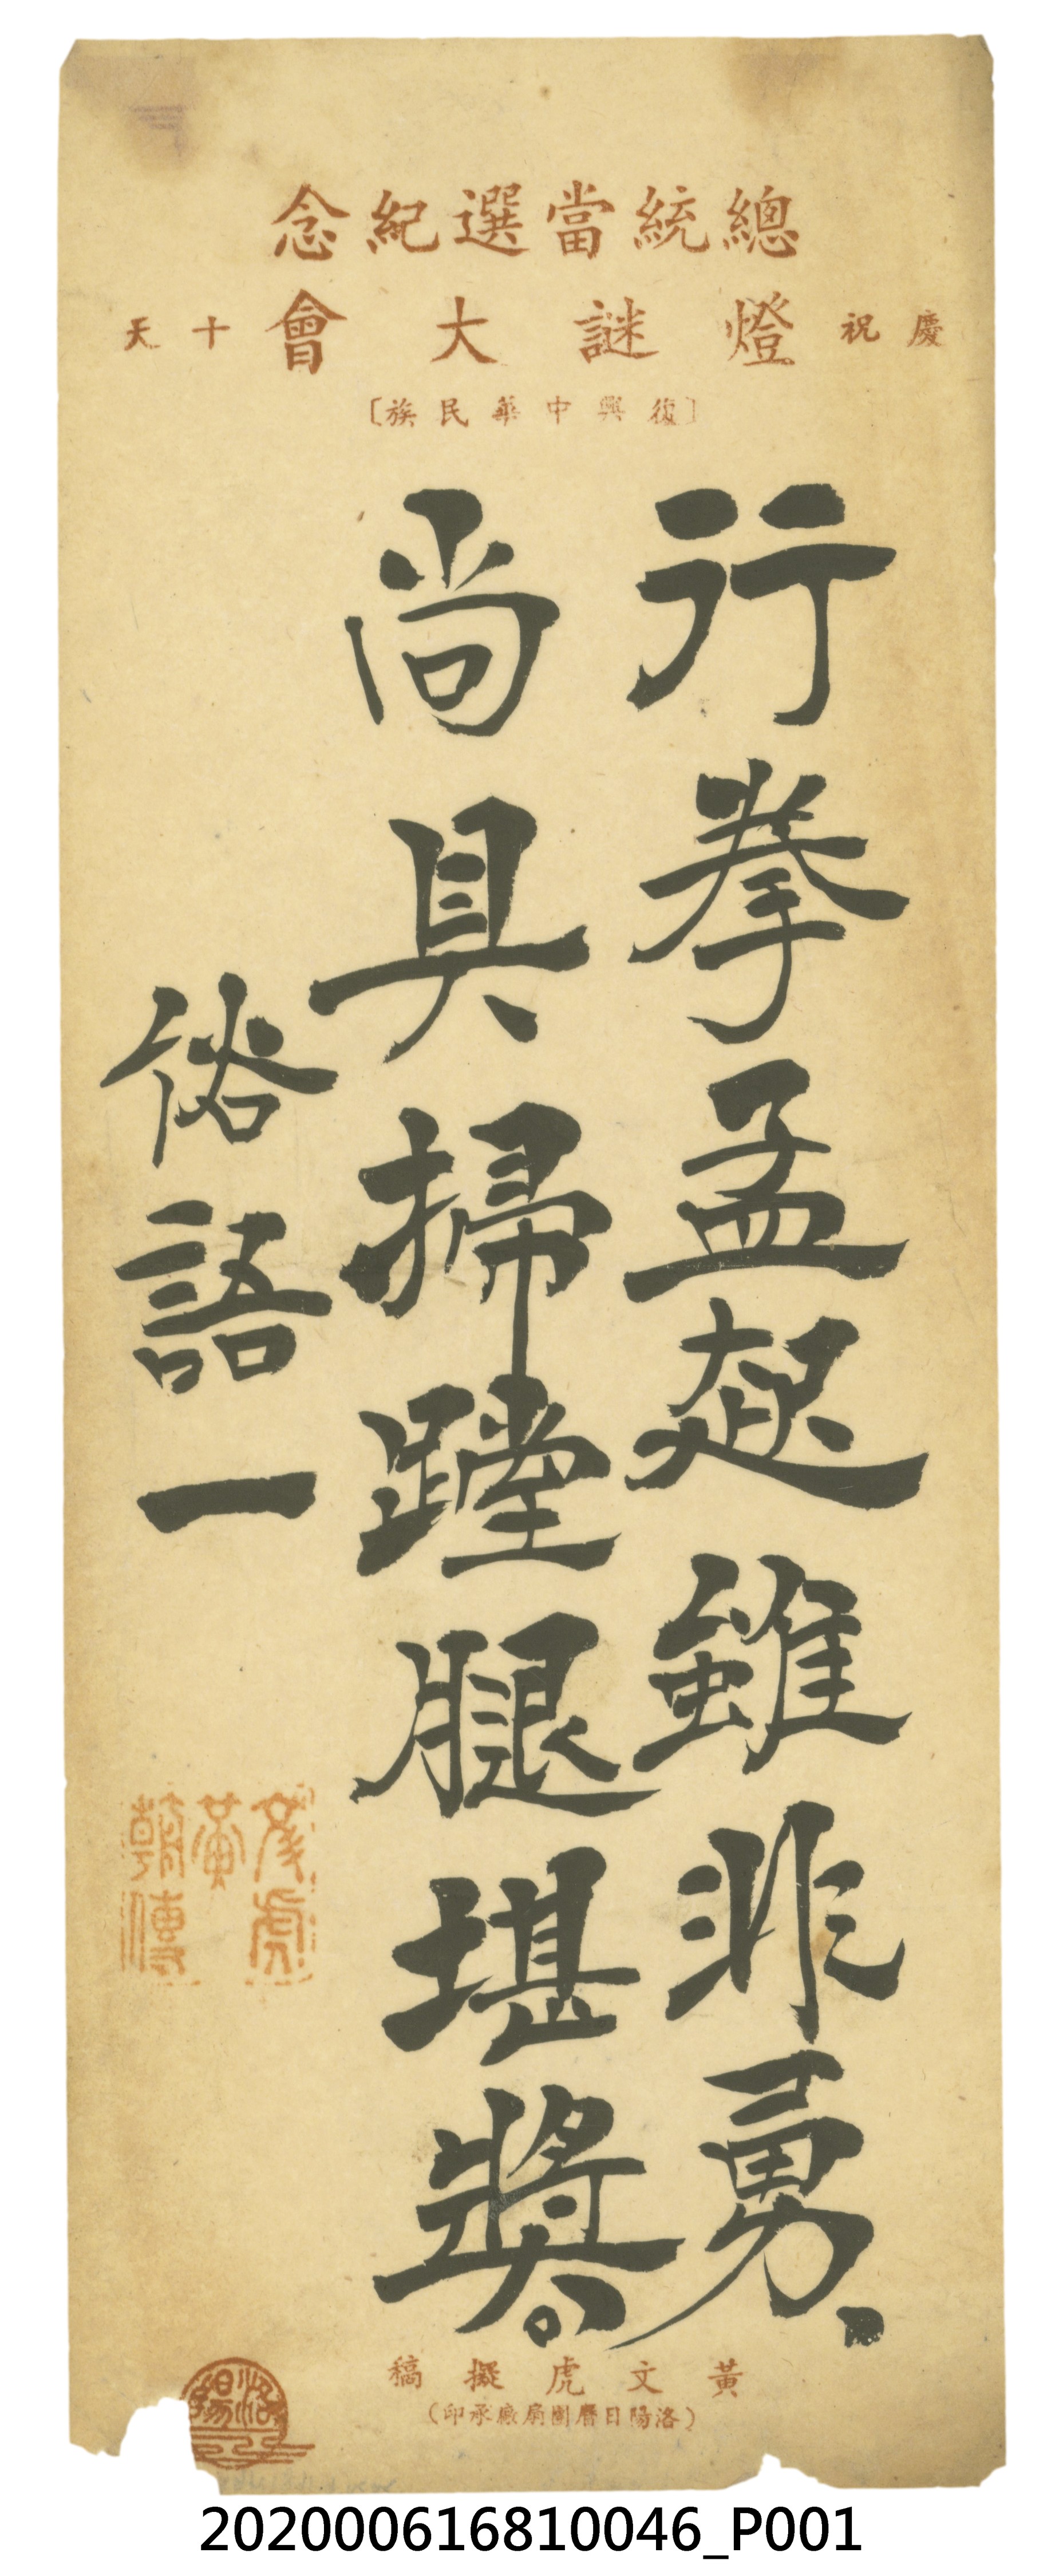 總統當選紀念
慶祝燈謎大會十天
〔復興中華民族〕
行拳孟起雖非勇、
尚具掃蹚腿堪獎。
俗語一
黃文虎擬稿
(洛陽日曆團扇廠承印)
洛陽
202000616810046_P001